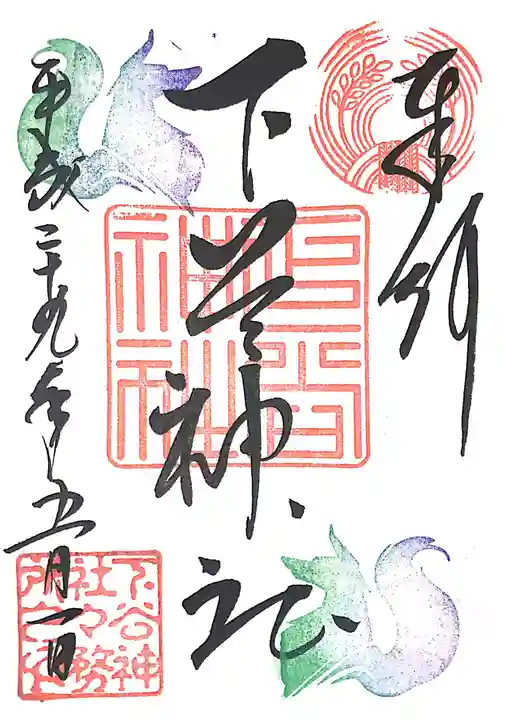 奉拝
下谷神社
平成二十九年五月一日
下谷神
社々務
所之印